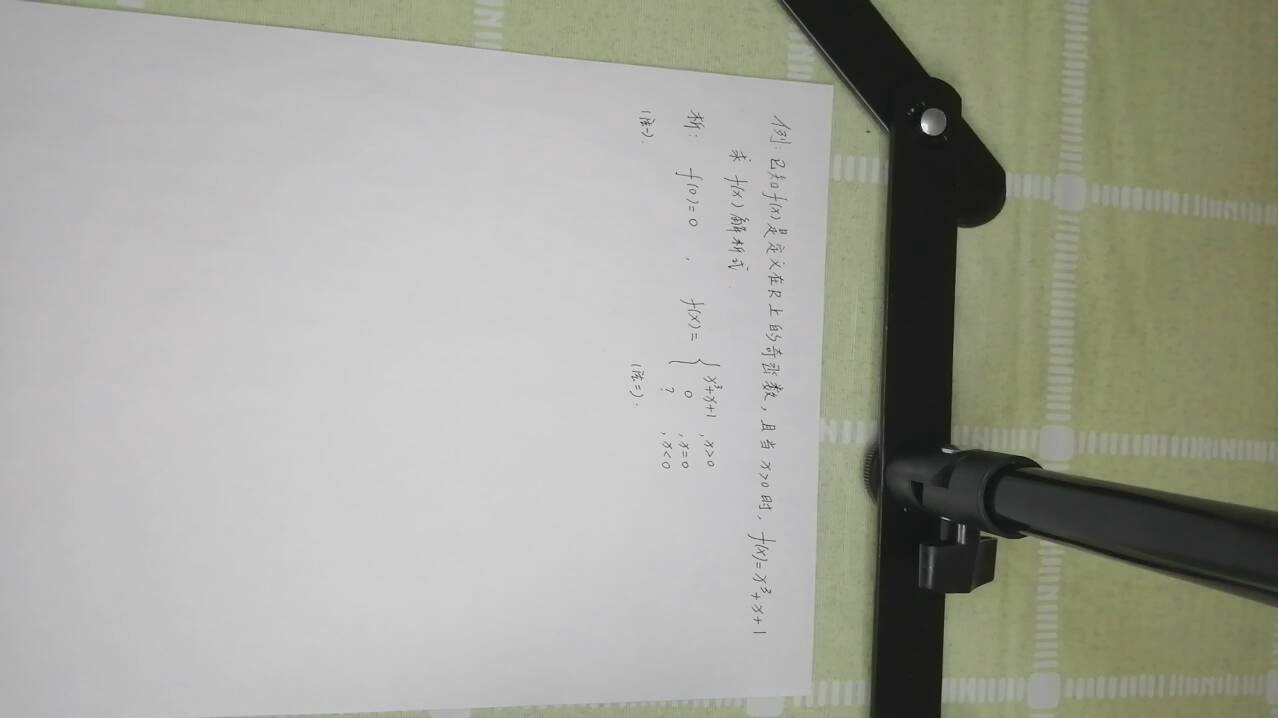 例:已知f(x)是定义在R上的奇函数,且当x>0时,f(x)=x³+x+1
求f(x)解析式.
析: f(0)=0 , f(x)= { x³+x+1 ,x>0
0 ,x=0
? ,x<0
(法一). (法二).